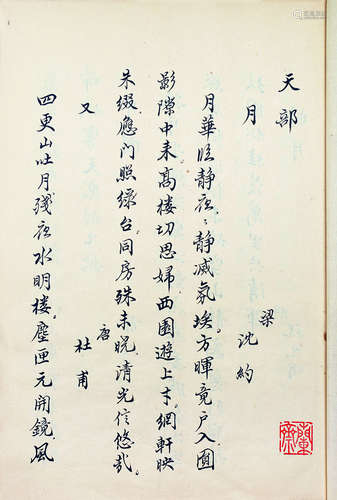 天部
月
梁
沈約
月華臨靜夜〻靜滅氛埃方暉竟戶入圓
影隙中来高樓切思婦西園遊上才網軒映
朱綴應门照綠台同房殊未晚清光信悠哉
又
唐
杜甫
四更山吐月殘夜水明樓塵匣元開鏡風